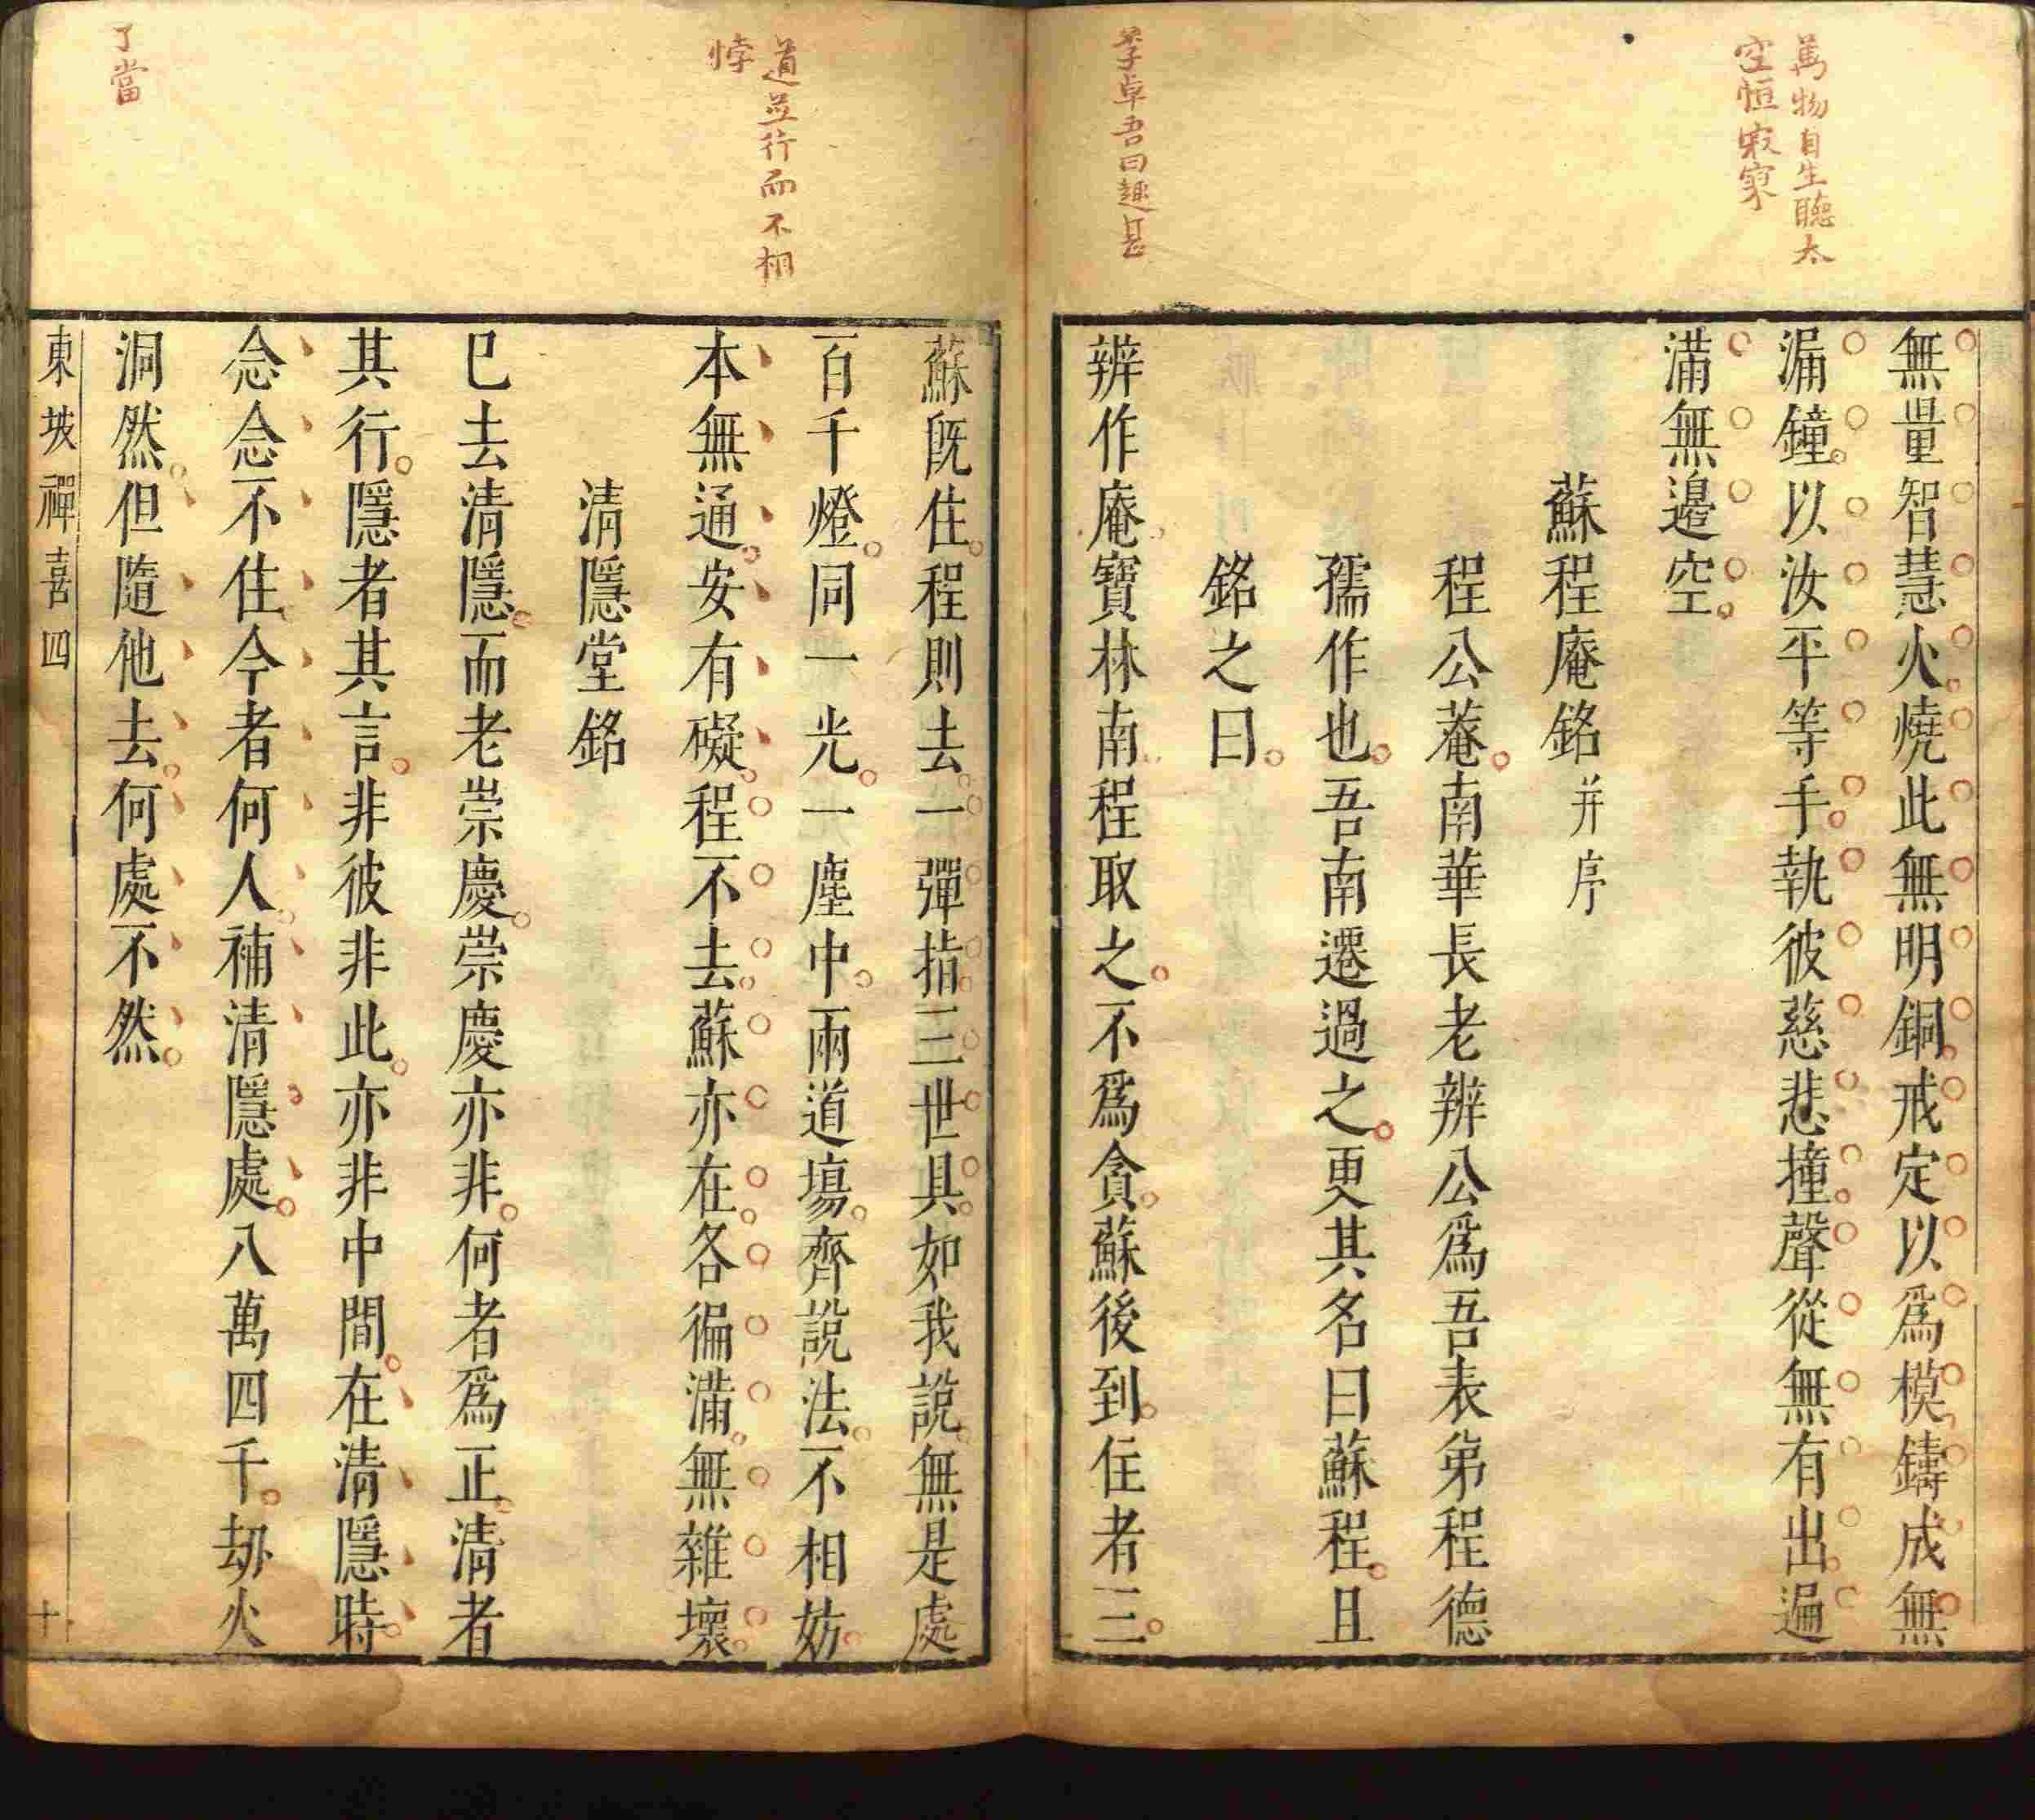 萬物自生聽太
空恒寂寞
李卓吾曰趣甚
無量智慧火燒此無明銅戒定以爲模鑄成無
漏鐘以汝平等手執彼慈悲撞聲從無有出遍
滿無邊空
蘇程庵銘并序
程公菴南華長老辨公爲吾表弟程德
孺作也吾南遷過之更其名曰蘇程且
銘之曰
辨作庵寶林南程取之不爲貪蘇後到住者三
道並行而不相
悖
了當
蘇既住程則去一彈指三世具如我說無是處
百千燈同一光一塵中兩道場齊說法不相妨
本無通安有礙程不去蘇亦在各徧滿無雜壞
清隱堂銘
已去清隱而老崇慶崇慶亦非何者爲正清者
其行隱者其言非彼非此亦非中間在清隱時
念念不住今者何人補清隱處八萬四千劫火
洞然但隨他去何處不然
東坡禪喜四
十